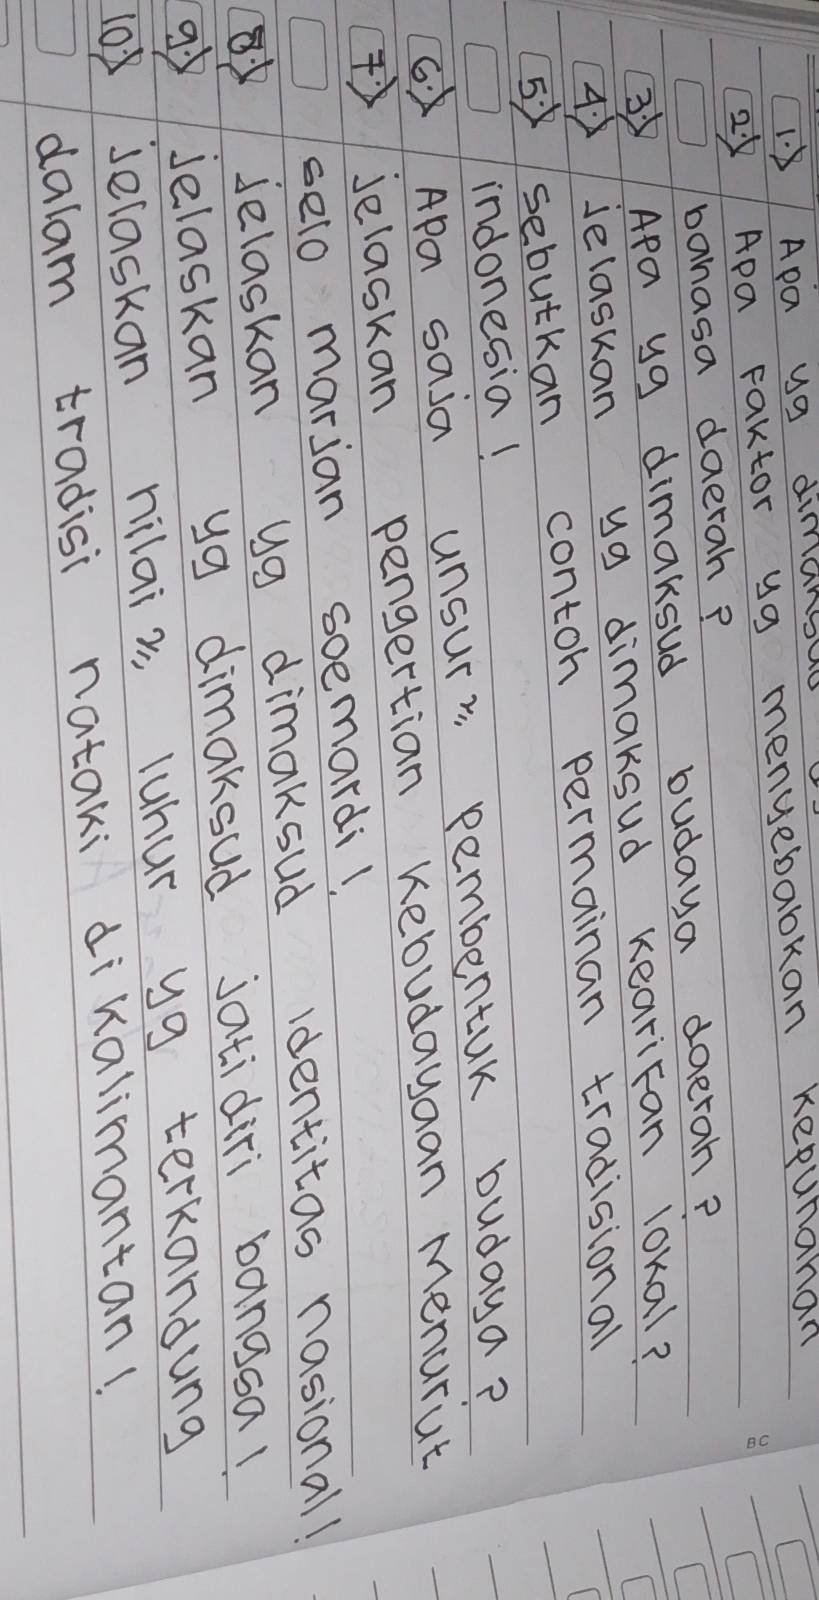 1.) Apa yg dimaksud
2.) Apa Faktor yg menyebabkan kepunahan
bahasa daerah?
3.) Apa yg dimaksud budaya daerah?
4.) jelaskan yg dimaksud kearifan lokal?
5.) sebutkan contoh permainan tradisional
indonesia!
6.) Apa saja unsur" pembentuk budaya?
7.) jelaskan pengertian kebudayaan Menurut
selo marjan soemardi!
8.) jelaskan yg dimaksud identitas nasional!
9.) jelaskan yg dimaksud jati diri bangsa!
10.) jelaskan nilai" luhur yg terkandung
dalam tradisi nataki di kalimantan!
BC